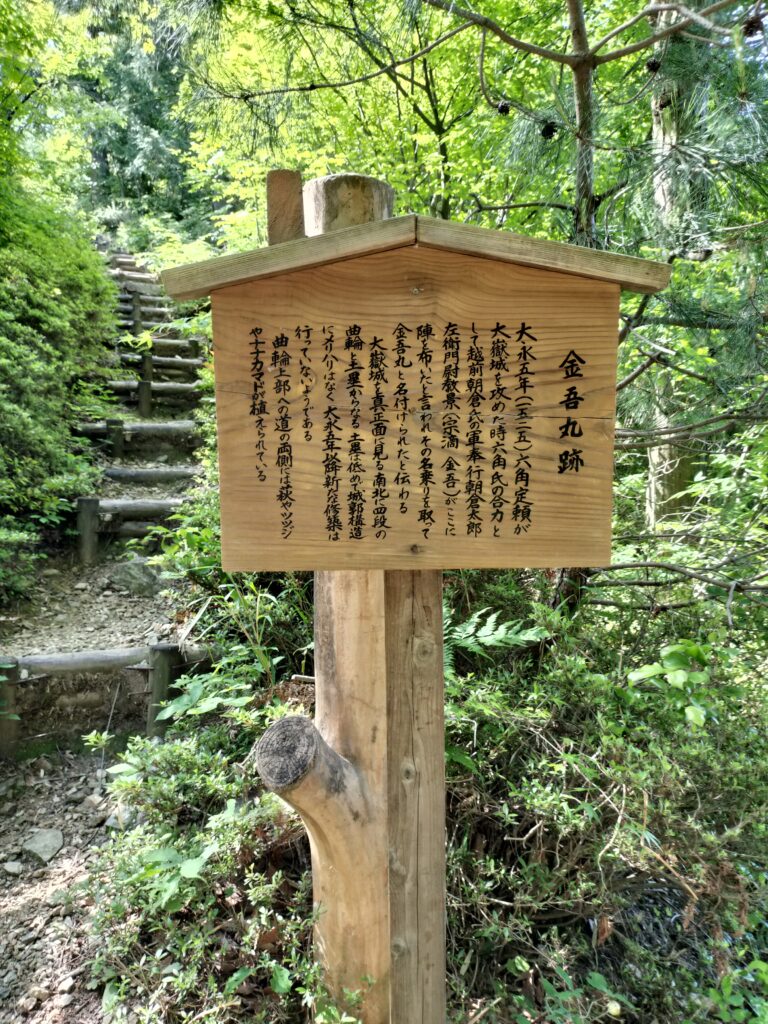 金吾丸跡
大永五年(一五二五)六角定頼が
大嶽城を攻めた時六角氏の合力と
して越前朝倉氏の軍奉行朝倉太郎
左衛門尉教景(宗滴 金吾)がここに
陣を布いたと言われその名乗りを取って
金吾丸と名付けられたと伝わる
大嶽城を真正面に見る南北に四段の
曲輪と土塁からなる 土塁は低めで城郭構造
にメリハリはなく大永五年以降新たな修築は
行っていないようである
曲輪上部への道の両側には萩やツツジ
やナナカマドが植えられている